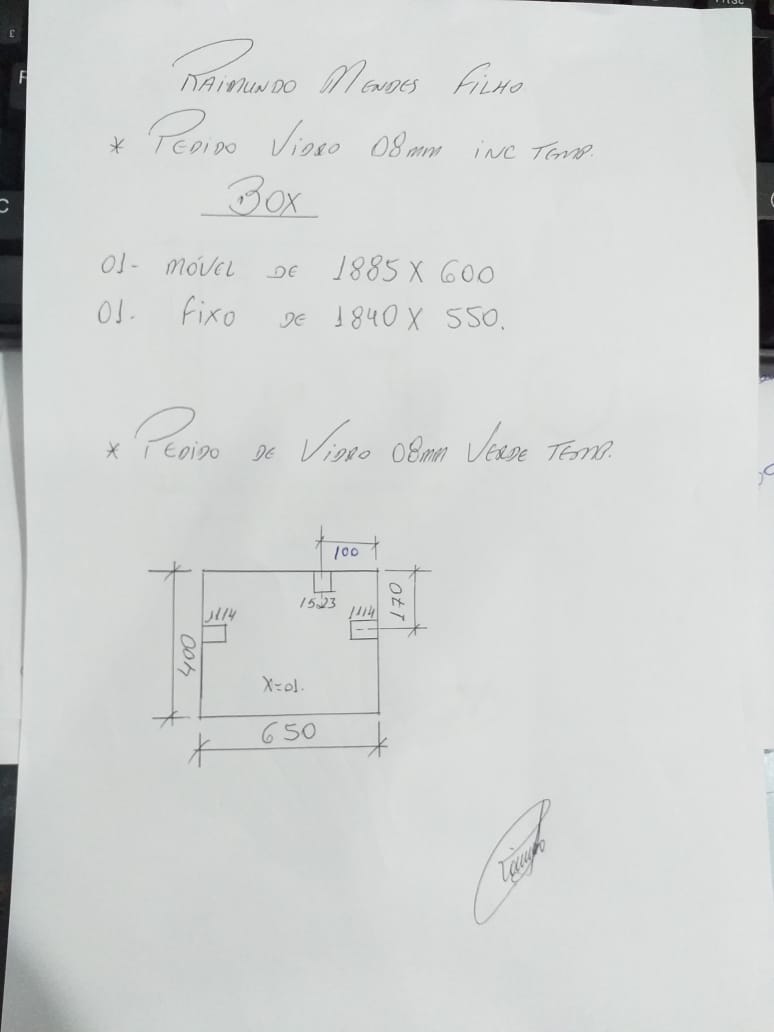 RAIMUNDO MENDES FILHO
* PEDIDO VIDRO 08mm INC TEMP.
BOX
01- MÓVEL DE 1885 X 600
01. FIXO DE 1840 X 550.
* PEDIDO DE VIDRO 08mm VERDE TEMP.
100
1523
170
1114
1114
400
X=01.
650